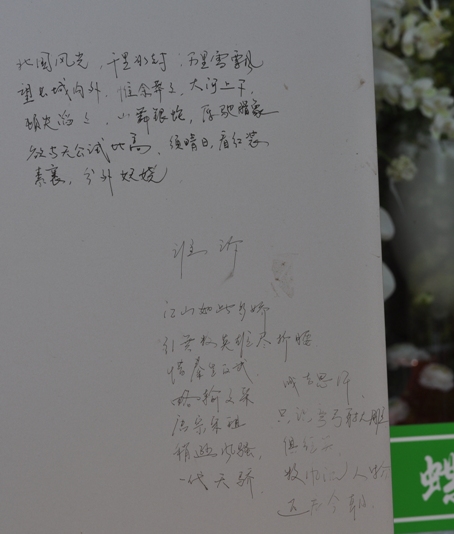 北国风光，千里冰封，万里雪飘
望长城内外，惟余莽之，大河上下，
顿失滔之，山舞银蛇，原驰腊象
欲与天公试比高，须晴日，看红装
素裹，分外妖娆
江山如此多娇
引无数英雄尽折腰
惜秦皇汉武
略输文采
唐宗宋祖
稍逊风骚，
一代天骄
成吉思汗
只识弯弓射大雕
俱往矣
数风流人物
还看今朝
蝶